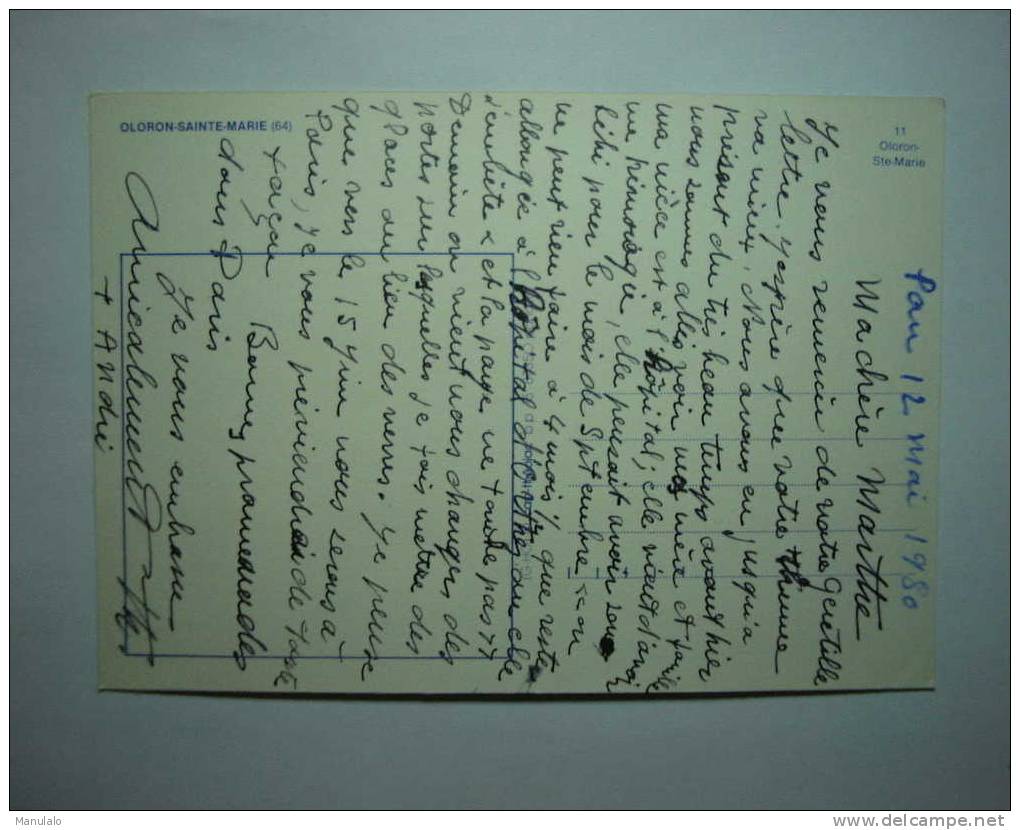 OLORON-SAINTE-MARIE (64)
11
Oloron-
Ste-Marie
Pau 12 mai 1980
Ma chère Marthe
Je vous remercie de votre gentille
lettre. J'espère que votre
va mieux, Nous avons eu jusqu'à
présent du très beau temps avant hier
nous sommes allés voir ma mère et
ma nièce est à l'hôpital; elle vient d'avoir
une, elle pensait avoir son
bébé pour le mois de Septembre xx on
ne peut rien faire à 4 mois 1/2 que rester
allongée à l'Hôpital où elle
s'embête x et la paye ne tombe pas xx
Demain on vient nous changer des
portes sur lesquelles je fais mettre des
glaces au lieu des verres. Je pense
que vers le 15 Juin nous serons à
Paris, Je vous préviendrai de toute
façon Bonnes promenades
dans Paris
Je vous embrasse
Amicalement
+ André
Manulalo
delcampe.net